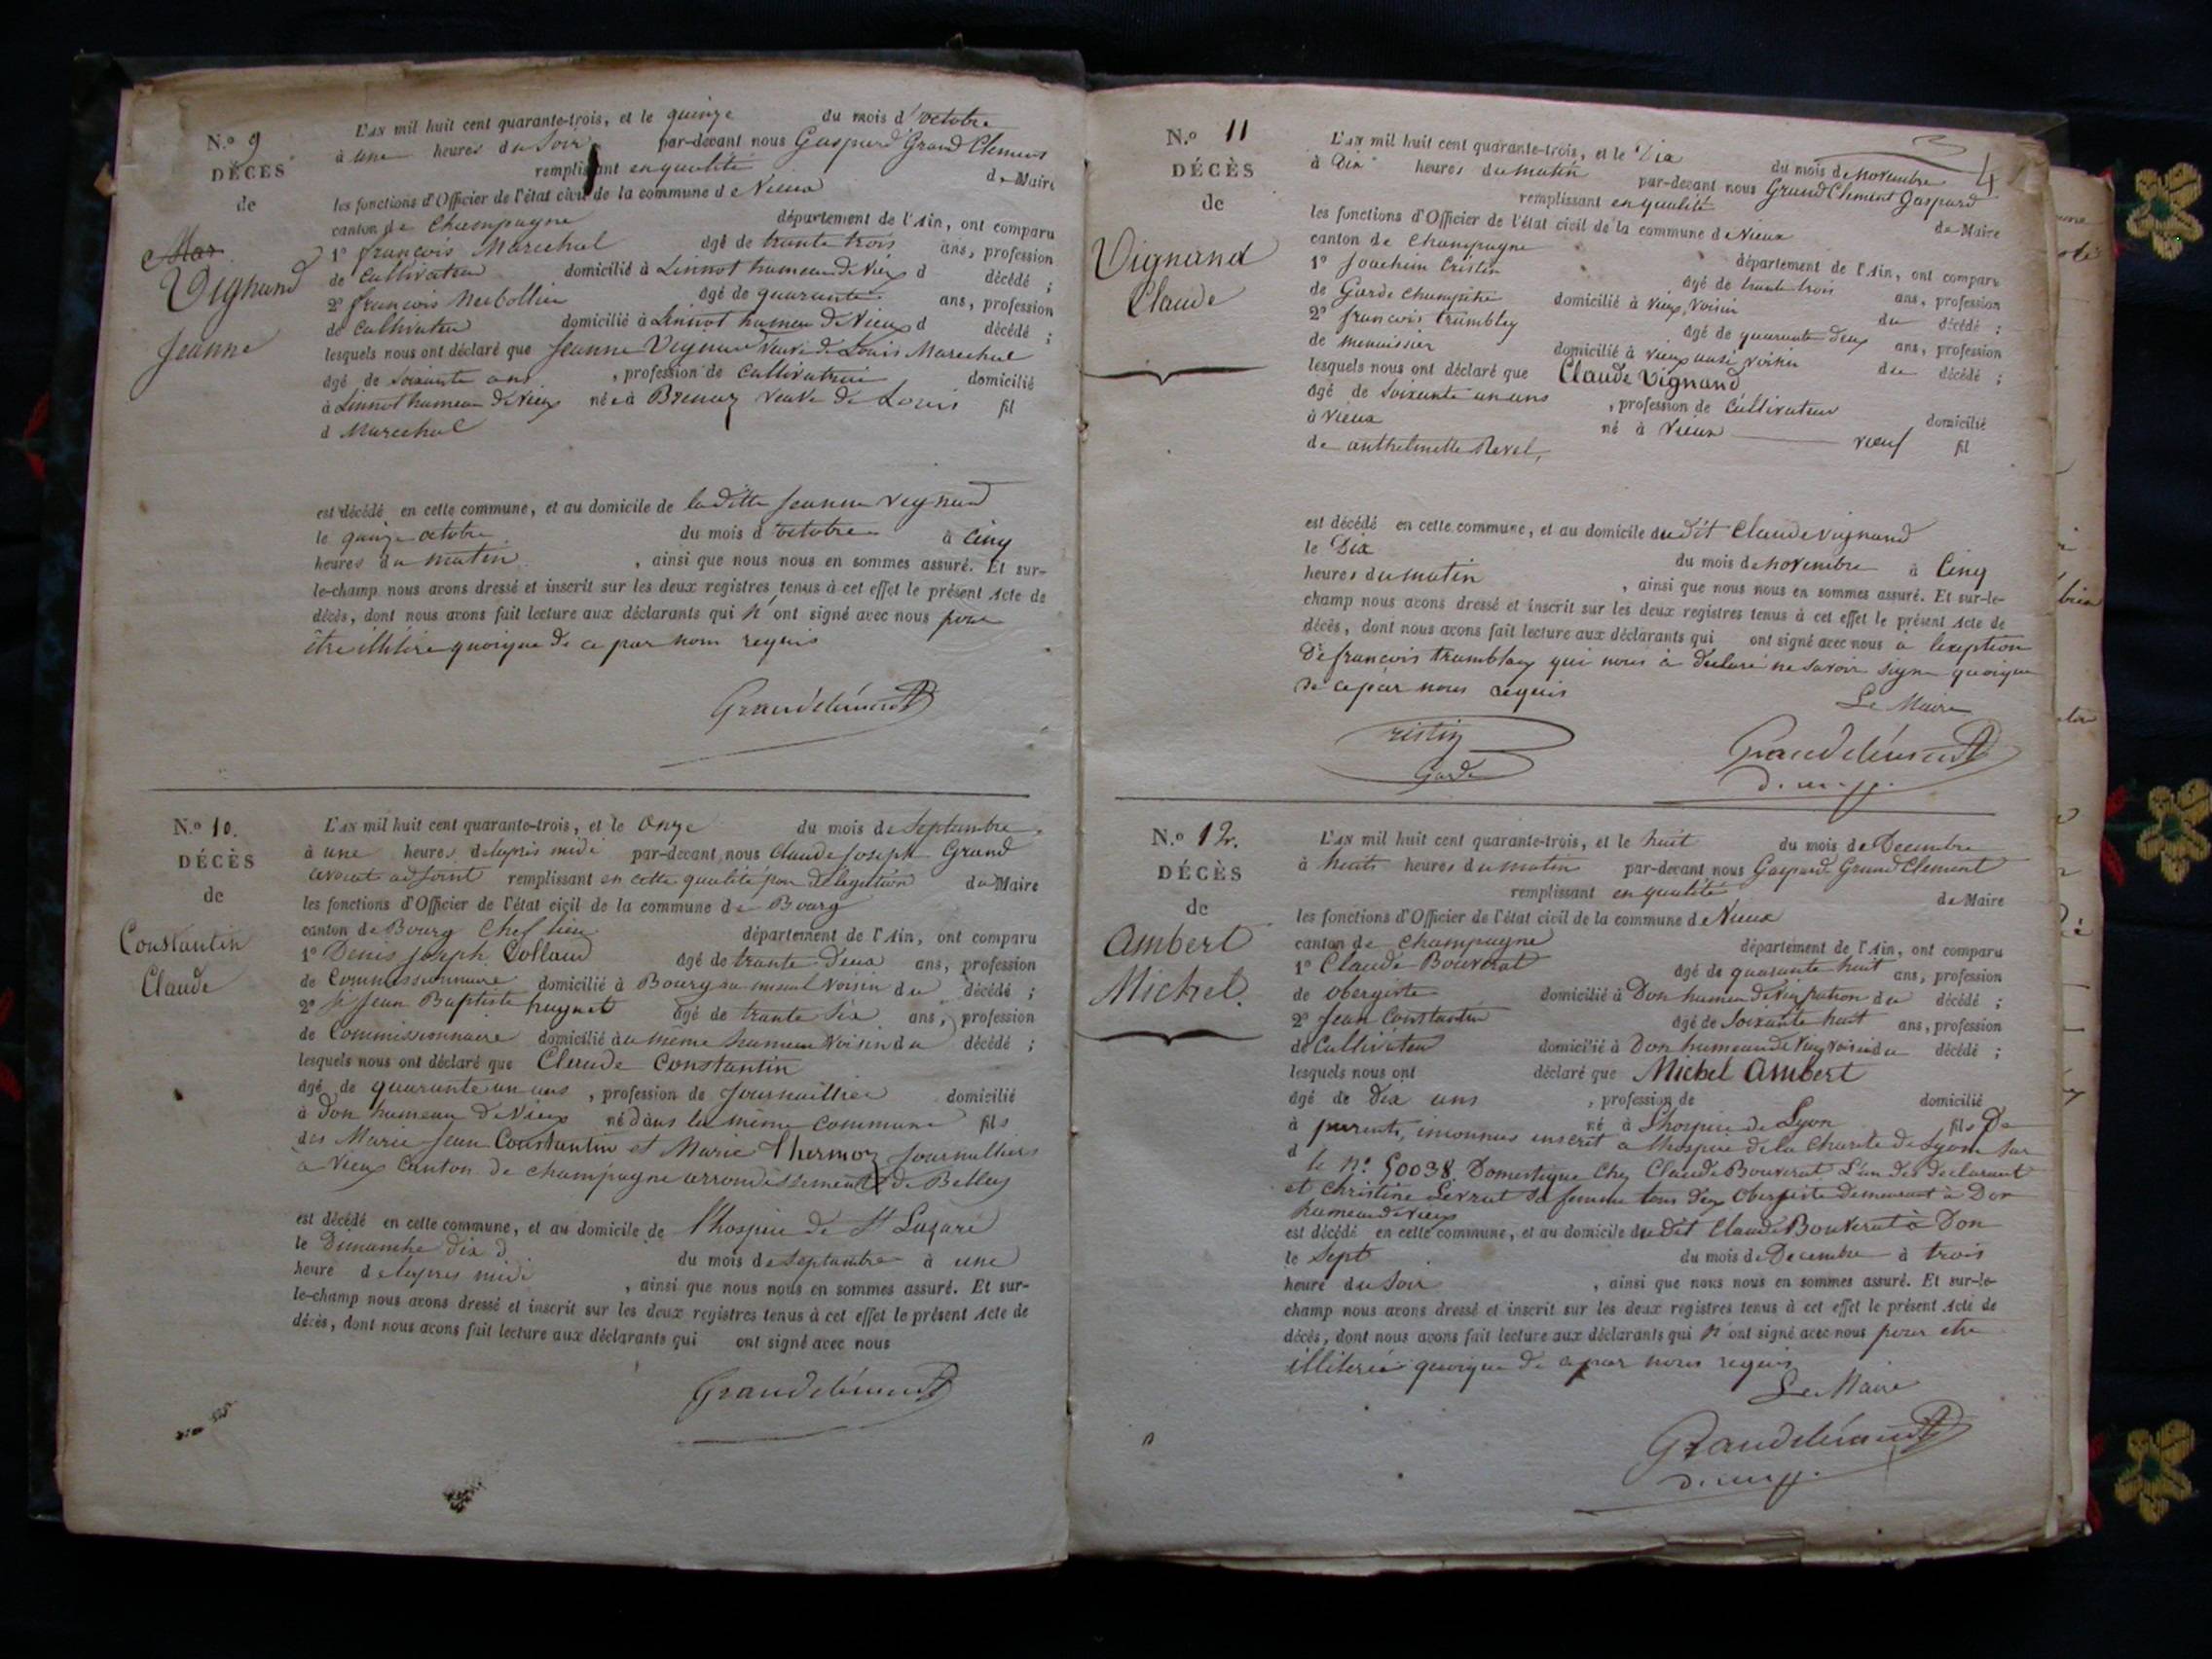 N.º 9
DÉCÈS
de
Mar
Vignand
Jeanne
L'AN mil huit cent quarante-trois, et le quinze du mois d'octobre
à une heures du Soir par-devant nous Gaspard Grand Clement
remplissant en qualité de Maire
les fonctions d'Officier de l'état civil de la commune de Vieux
canton de Champagne département de l'Ain, ont comparu
1º françois Marechal âgé de trante trois ans, profession
de Cultivateur domicilié à Linnot hameau de Vieux d décédé ;
2º françois âgé de quarante ans, profession
de Cultivateur domicilié à Linnot hameau de Vieux d décédé ;
lesquels nous ont déclaré que Jeanne Vignand veuve de Louis Marechal
âgé de Soixante ans , profession de Cultivatrice domicilié
à Linnot hameau de Vieux née à Brenaz veuve de Louis fil
d Marechal
est décédé en cette commune, et au domicile de la ditte Jeanne Vignand
le quinze octobre du mois d'octobre à Cinq
heures du matin , ainsi que nous nous en sommes assuré. Et sur-
le-champ nous avons dressé et inscrit sur les deux registres tenus à cet effet le présent Acte de
décès, dont nous avons fait lecture aux déclarants qui n'ont signé avec nous pour
être illitéré quoique de ce par nous requis
Grandclément
N.º 10.
DÉCÈS
de
Constantin
Claude
L'AN mil huit cent quarante-trois, et le onze du mois de Septembre
à une heures de lapris midi par-devant nous Claude Joseph Grand
avocat adjoint remplissant en cette qualité par délégation du Maire
les fonctions d'Officier de l'état civil de la commune de Bourg
canton de Bourg Chef lieu département de l'Ain, ont comparu
1º Denis Joseph Colland âgé de trante Deux ans, profession
de Commissionnaire domicilié à Bourg voisin du décédé ;
2º Jean Baptiste huguet âgé de trante Six ans, profession
de Commissionnaire domicilié au meme hameau voisin du décédé ;
lesquels nous ont déclaré que Claude Constantin
âgé de quarante un ans , profession de Journaillier domicilié
à Don hameau de Vieux né dans la même Commune fils
des Marié Jean Constantin et Marie Thermoz Journalliers
à Vieux Canton de Champagne arrondissement de Belley
est décédé en cette commune, et au domicile de l'hospice de St Lazare
le Dimanche dix d du mois de Septembre à une
heure de lapres midi , ainsi que nous nous en sommes assuré. Et sur-
le-champ nous avons dressé et inscrit sur les deux registres tenus à cet effet le présent Acte de
décès, dont nous avons fait lecture aux déclarants qui ont signé avec nous
Grandclément
4
N.º 11
DÉCÈS
de
Vignand
Claude
L'AN mil huit cent quarante-trois, et le Dix du mois de Novembre
à Dix heures du matin par-devant nous Grand Clement Gaspard
remplissant en qualité de Maire
les fonctions d'Officier de l'état civil de la commune de Vieux
canton de Champagne département de l'Ain, ont comparu
1º Joachim Cristin âgé de trante trois ans, profession
de Garde Champêtre domicilié à Vieux, Voisin du décédé ;
2º françois tramblay âgé de quarante deux ans, profession
de menuisier domicilié à Vieux aussi voisin du décédé ;
lesquels nous ont déclaré que Claude Vignand
âgé de Soixante un ans , profession de Cultivateur domicilié
à Vieux né à Vieux veuf fil
de anthelmette Revel,
est décédé en cette commune, et au domicile du dit Claude Vignand
le Dix du mois de Novembre à Cinq
heures du matin , ainsi que nous nous en sommes assuré. Et sur-le-
champ nous avons dressé et inscrit sur les deux registres tenus à cet effet le présent Acte de
décès, dont nous avons fait lecture aux déclarants qui ont signé avec nous à lexeption
De françois tramblay qui nous à declaré ne savoir signe quoique
de ce par nous requis
Le Maire
ristin
Garde
Grandclément
N.º 12.
DÉCÈS
de
Ambert
Michel.
L'AN mil huit cent quarante-trois, et le huit du mois de Decembre
à huits heures du matin par-devant nous Gaspard Grand Clement
remplissant en qualité de Maire
les fonctions d'Officier de l'état civil de la commune de Vieux
canton de Champagne département de l'Ain, ont comparu
1º Claude Bouverat âgé de quarante huit ans, profession
de obergiste domicilié à Don hameau de Vieux patron du décédé ;
2º Jean Constantin âgé de Soixante huit ans, profession
de Cultivateur domicilié à Don hameau de Vieux voisin du décédé ;
lesquels nous ont déclaré que Michel Ambert
âgé de Dix ans , profession de domicilié
à né à Lhospice de Lyon fils De
d parents, inconnus inscrit a lhospice de la Charité de Lyon Sur
le Nº 50038. Domestique Chez Claude Bouverat L'un des Declarant
et Christine Levrat Sa femme tous deux obergiste demeurant à Don
hameau de Vieux
est décédé en cette commune, et au domicile du dit Claude Bouverat à Don
le Sept du mois de Decembre à trois
heure du Soir , ainsi que nous nous en sommes assuré. Et sur-le-
champ nous avons dressé et inscrit sur les deux registres tenus à cet effet le présent Acte de
décès, dont nous avons fait lecture aux déclarants qui n'ont signé avec nous pour etre
illiteré quoique de ce par nous requis
Le Maire
Grandclément